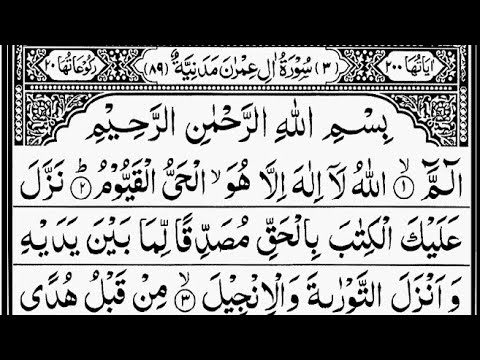 اٰيَاتُهَا ٢٠٠ (٣) سُوْرَةُ اٰلِ عِمْرٰنَ مَدَنِيَّةٌ (٨٩) رُكُوْعَاتُهَا ٢٠
بِسْمِ اللّٰهِ الرَّحْمٰنِ الرَّحِيْمِ
الٓمّٓ ۙ﴿١﴾ اللّٰهُ لَاۤ اِلٰهَ اِلَّا هُوَ ۙ الْحَىُّ الْقَيُّوْمُ ؕ﴿٢﴾ نَزَّلَ
عَلَيْكَ الْكِتٰبَ بِالْحَقِّ مُصَدِّقًا لِّمَا بَيْنَ يَدَيْهِ
وَ اَنْزَلَ التَّوْرٰىةَ وَ الْاِنْجِيْلَ ۙ﴿٣﴾ مِنْ قَبْلُ هُدًى